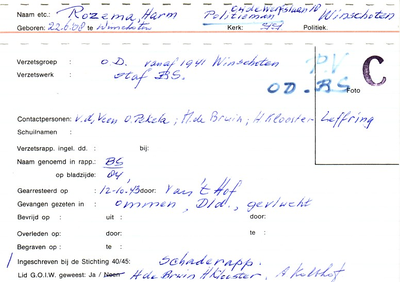 Naam etc.: Rozema, Harm Politieman Winschoten
Geboren: 22.6.'08 te Winschoten Kerk: Politiek:
Verzetsgroep : O.D. vanaf 1941 Winschoten P.V
Verzetswerk : Staf B.S. OD. BS
Foto C
Contactpersonen: v.d. Veen O. Pekela; H. de Bruin; H Klooster Leffring
Schuilnaam :
Verzetsrapp. ingel. dd. : bij:
Naam genoemd in rapp.: BS
op bladzijde: 04
Gearresteerd op : 12-10-'43 door: van 't Hof
Gevangen gezeten in : Ommen, Dld., gevlucht
Bevrijd op : uit : door:
Overleden op: door: te :
Begraven op : te :
Ingeschreven bij de Stichting 40/45: Schaderapp.
Lid G.O.I.W. geweest: Ja / Neen H de Bruin H Klooster. A Kolthof